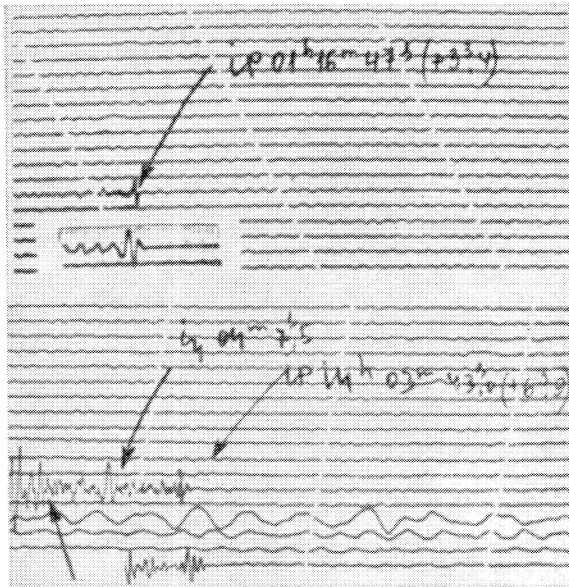 iP 01ʰ 16ᵐ 47ˢ (+3ˢ,4)
04ᵐ 7ˢ,5
iP 14ʰ 03ᵐ 43ˢ,0 (+6ˢ,9)